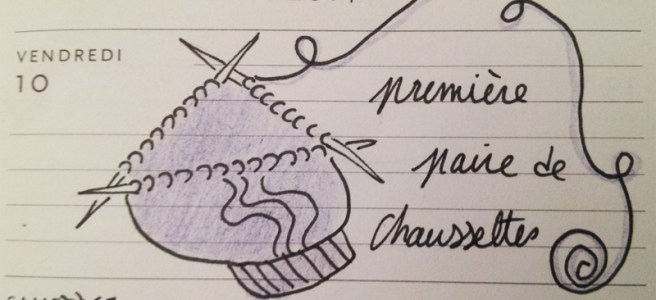 VENDREDI
10
première
paire de
chaussettes